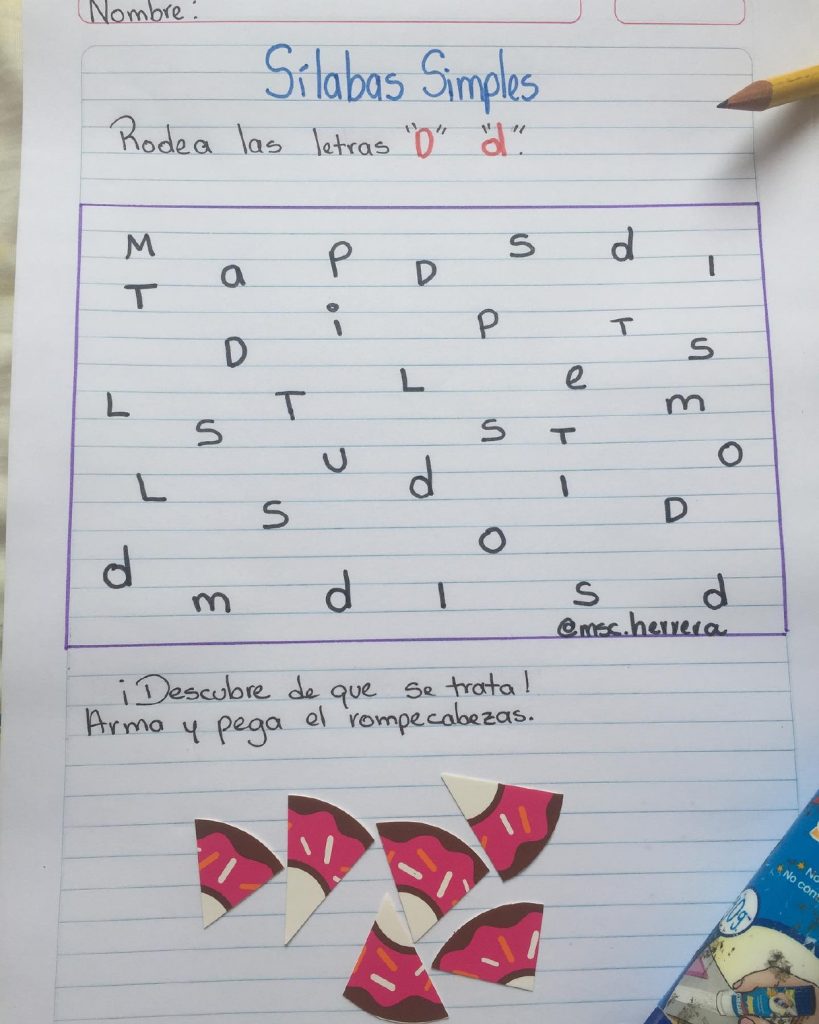 Nombre:
Sílabas Simples
Rodea las letras "D" "d".
M a P D S d I
T i P T
D L e S
L S T S T m
L U d I O
S O D
d m d I S d
@msc.herrera
¡Descubre de que se trata!
Arma y pega el rompecabezas.
No
No con